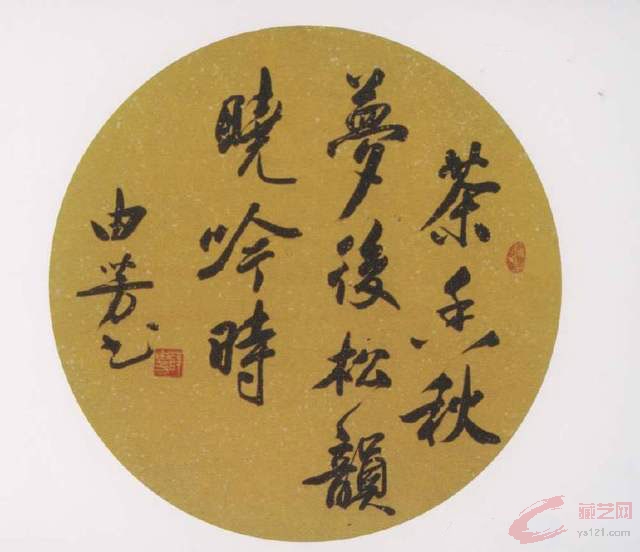 茶香秋
夢後松韻
曉吟時
由芳书
藏艺网
ys121.com